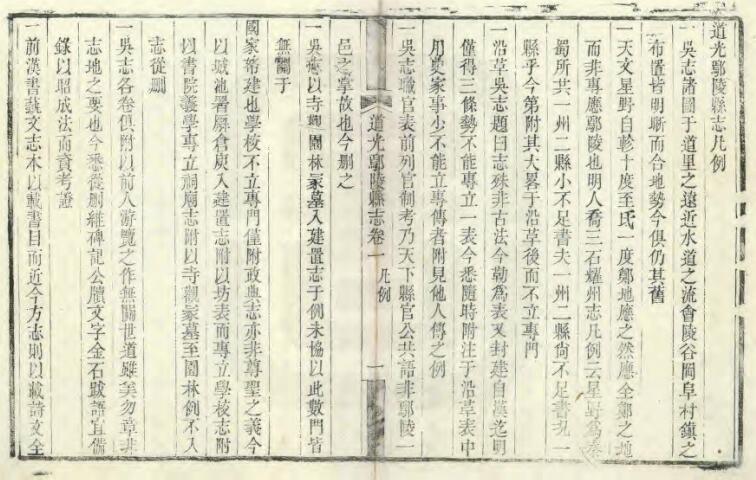 道光鄢陵縣志凡例
一吳志諸圖于道里之遠近水道之流會陵谷岡阜村鎮之
布置皆明晰而合地勢今俱仍其舊
一天文星野自軫十度至氐一度鄭地應之然應全鄭之地
而非專應鄢陵也明人喬三石耀州志凡例云星野為秦
蜀所共一州二縣小不足書夫一州二縣尚不足書況一
縣乎今第附其大畧于沿革後而不立專門
一沿革吳志題曰志殊非古法今勒為表又封建自漢迄明
僅得三條勢不能專立一表今悉隨時附注于沿革表中
用史家事少不能立專傳者附見他人傳之例
一吳志職官表前列官制考乃天下縣官公共語非鄢陵一
道光鄢陵縣志卷一 凡例 一
邑之掌故也今刪之
一吳志以寺觀園林冢墓入建置志于例未協以此數門皆
無關于
國家等建也學校不立專門僅附政典志亦非尊聖之義今
以城池署廨倉庾入建置志附以坊表而專立學校志附
以書院義學專立祠廟志附以寺觀冢墓至園林例不入
志從刪
一吳志各卷俱附以前人游覽之作無關世道雖美勿章非
志地之要也今悉從刪雜碑記公牘文字金石跋語宜備
錄以昭成法而資考證
一前漢書藝文志本以載書目而近今方志則以載詩文全